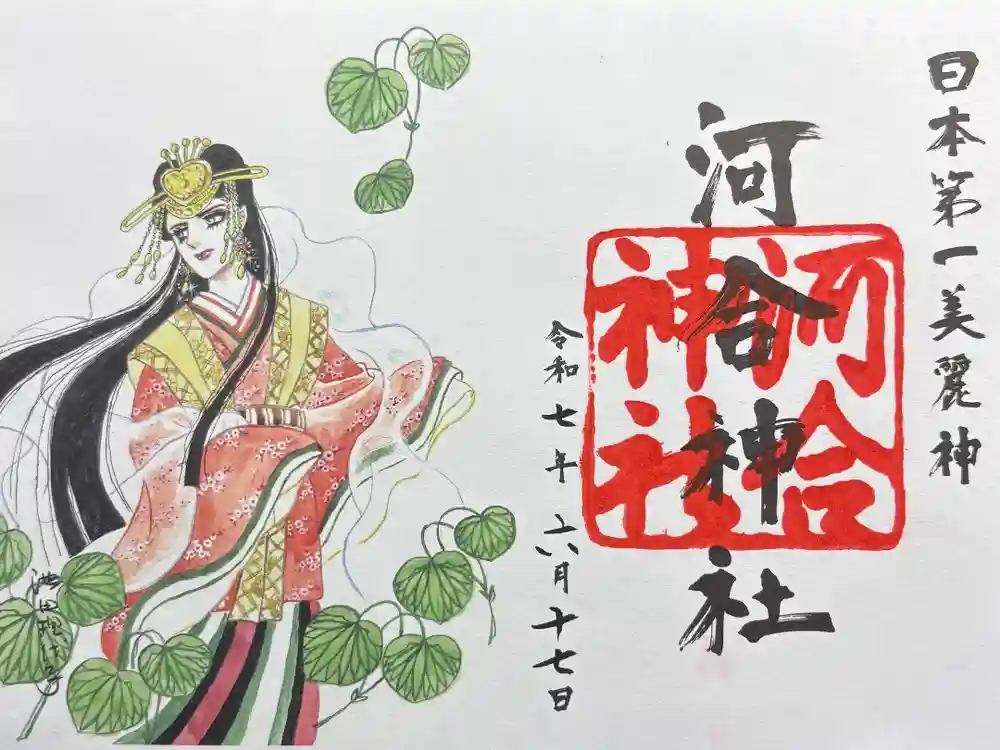 日本第一美麗神
河合神社
河合
神社
令和七年六月十七日
池田理代子